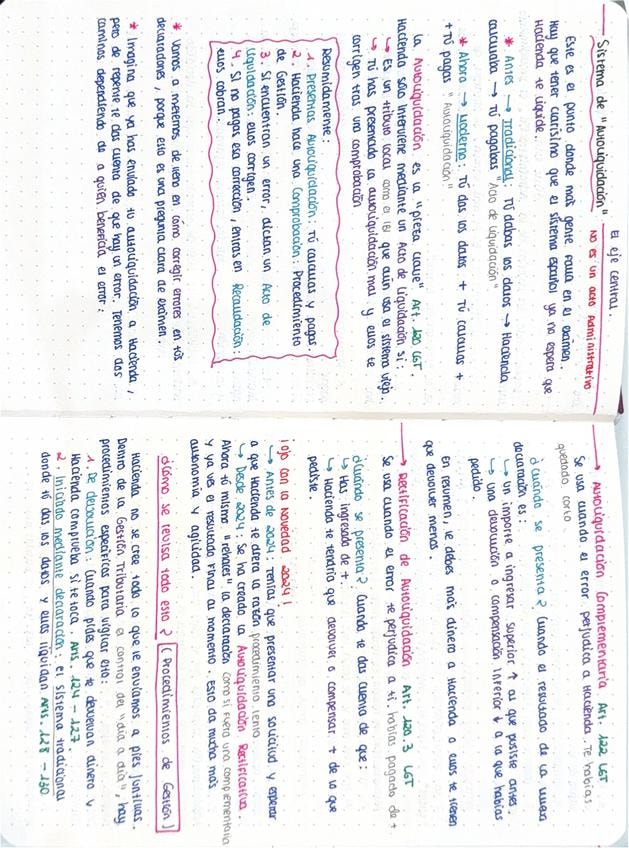 El eje central.
Sistema de "Autoliquidación" NO ES UN ACTO Administrativo
Este es el punto donde más gente falla en el examen.
Hay que tener clarísimo que el sistema español ya no espera que
Hacienda te liquide.
* Antes → Tradicional: Tú dabas los datos → Hacienda
calculaba → Tú pagabas "Acto de liquidación"
* Ahora → Moderno: Tú das los datos + Tú calculas +
+ Tú pagas "Autoliquidación"
La Autoliquidación es la "pieza clave" Art. 120 LGT.
Hacienda solo interviene mediante un Acto de Liquidación si:
↳ Es un tributo local como el IBI que aún usa el sistema viejo.
↳ Tú has presentado la autoliquidación mal y ellos te
corrigen tras una comprobación
Resumidamente:
1. Presentas Autoliquidación: Tú calculas y pagas.
2. Hacienda hace una Comprobación: Procedimiento
de Gestión.
3. Si encuentran un error, dictan un Acto de
Liquidación: ellos corrigen.
4. Si no pagas esa corrección, entras en Recaudación:
ellos cobran.
* Vamos a meternos de lleno en cómo corregir errores en tus
declaraciones, porque esto es una pregunta clara de examen.
* Imagina que ya has enviado tu autoliquidación a Hacienda,
pero de repente te das cuenta de que hay un error. Tenemos dos
caminos dependiendo de a quién beneficia el error:
→ Autoliquidación Complementaria Art. 122 LGT
Se usa cuando el error perjudica a Hacienda. Te habías
quedado corto
¿Cuándo se presenta? Cuando el resultado de la nueva
declaración es:
↳ Un importe a ingresar superior ↑ al que pusiste antes.
↳ Una devolución o compensación inferior ↓ a la que habías
pedido.
En resumen, le debes más dinero a Hacienda o ellos te tienen
que devolver menos.
→ Rectificación de Autoliquidación Art. 120.3 LGT
Se usa cuando el error te perjudica a ti. habías pagado de +
¿Cuándo se presenta? Cuando te das cuenta de que:
↳ Has ingresado de +.
↳ Hacienda te tendría que devolver o compensar + de lo que
pediste.
¡Ojo con la Novedad 2024!
↳ Antes de 2024: Tenías que presentar una solicitud y esperar
a que Hacienda te diera la razón procedimiento lento
↳ Desde 2024: Se ha creado la Autoliquidación Rectificativa.
Ahora tú mismo "rehaces" la declaración como si fuera una complementaria
y ya ves el resultado final al momento. Esto da mucha más
autonomía y agilidad.
¿Cómo se revisa todo esto? (Procedimientos de Gestión)
Hacienda no se cree todo lo que le enviamos a pies juntillas.
Dentro de la Gestión Tributaria el control del "día a día", hay
procedimientos específicos para vigilar esto:
1. De devolución: Cuando pides que te devuelvan dinero y
Hacienda comprueba si te toca. Arts. 124 - 127
2. Iniciado mediante declaración: el sistema tradicional
donde tú das los datos y ellos liquidan Arts. 128 - 130